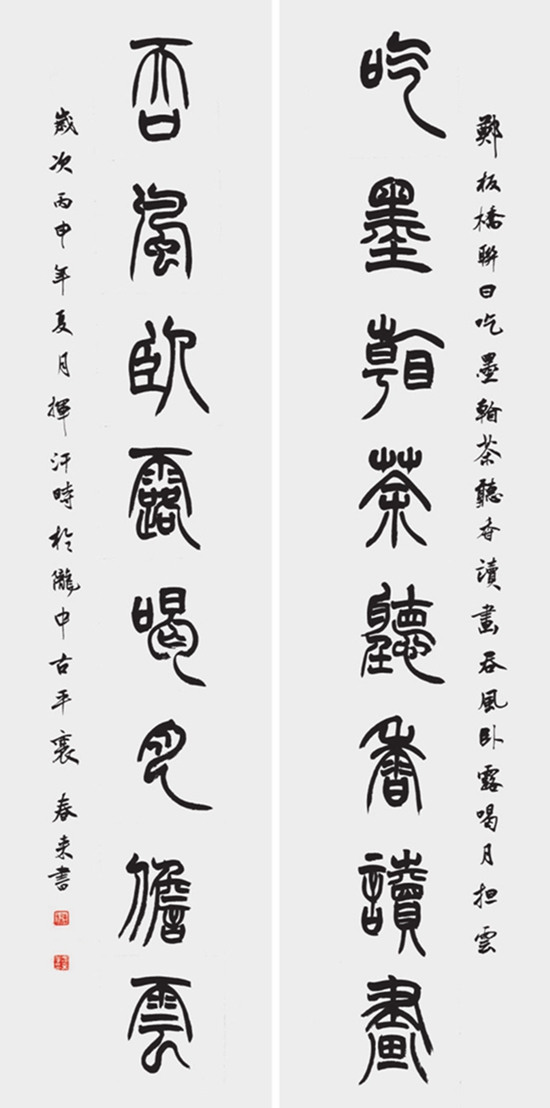 鄭板橋聯曰吃墨翰茶聽香讀畫吞風卧露喝月担雲
吃墨翰茶聽香讀畫
吞風臥露喝月儋雲
歲次丙申年夏月揮汗時於隴中古平襄 春来書